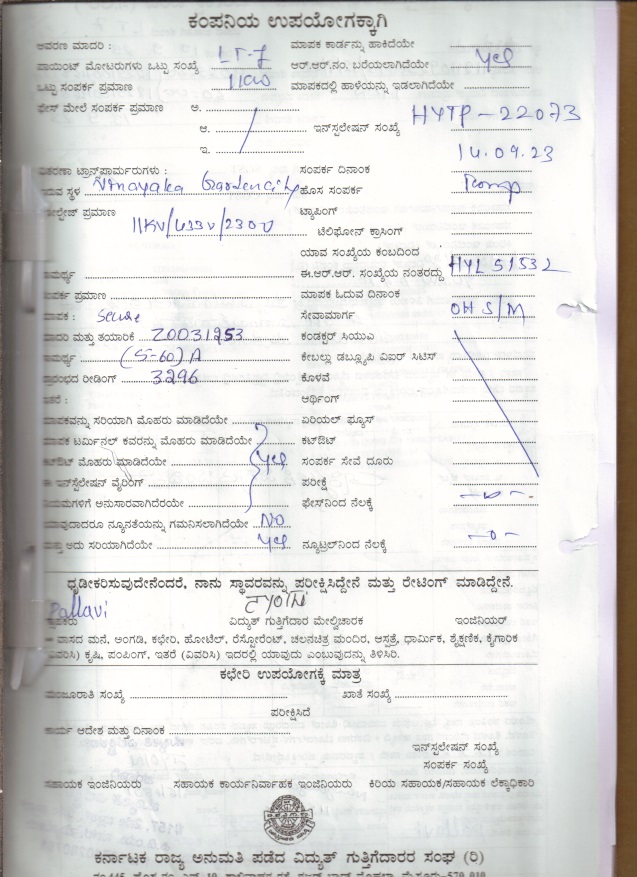 ಕಂಪನಿಯ ಉಪಯೋಗಕ್ಕಾಗಿ
ಆವರಣ ಮಾದರಿ : LT-7 ಮಾಪಕ ಕಾರ್ಡನ್ನು ಹಾಕಿದೆಯೇ
ಪಾಯಿಂಟ್ ಮೋಟರುಗಳು ಒಟ್ಟು ಸಂಖ್ಯೆ ಆರ್.ಆರ್.ನಂ. ಬರೆಯಲಾಗಿದೆಯೇ Yes
ಒಟ್ಟು ಸಂಪರ್ಕ ಪ್ರಮಾಣ ಮಾಪಕದಲ್ಲಿ ಹಾಳೆಯನ್ನು ಇಡಲಾಗಿದೆಯೇ
ಫೇಸ್ ಮೇಲೆ ಸಂಪರ್ಕ ಪ್ರಮಾಣ ಅ.
ಆ. ಇನ್ಸ್‌ಲೇಷನ್ ಸಂಖ್ಯೆ HYTP-22073
ಇ. 14.09.23
ವಿತರಣಾ ಟ್ರಾನ್ಸ್‌ಫಾರ್ಮರುಗಳು : ಸಂಪರ್ಕ ದಿನಾಂಕ
ಇರುವ ಸ್ಥಳ Vinayaka Gardencity ಹೊಸ ಸಂಪರ್ಕ
ವೋಲ್ಟೇಜ್ ಪ್ರಮಾಣ 11KV/433V/230V ಟ್ಯಾಪಿಂಗ್
ಟೆಲಿಫೋನ್ ಕ್ರಾಸಿಂಗ್
ಯಾವ ಸಂಖ್ಯೆಯ ಕಂಬದಿಂದ
ಸಾಮರ್ಥ್ಯ ಈ.ಆರ್.ಆರ್. ಸಂಖ್ಯೆಯ ನಂತರದ್ದು HYL 51532
ಸಂಪರ್ಕ ಪ್ರಮಾಣ ಮಾಪಕ ಓದುವ ದಿನಾಂಕ
ಮಾಪಕ : Secure ಸೇವಾಮಾರ್ಗ OH S/M
ಮಾದರಿ ಮತ್ತು ತಯಾರಿಕೆ Z0031253 ಕಂಡಕ್ಟರ್ ಸಿಯುಎ
ಸಾಮರ್ಥ್ಯ (5-60)A ಕೇಬಲ್ಲು ಡಬ್ಲ್ಯೂಪಿ ವಿಐರ್ ಸಿಟಿಸ್
ಪ್ರಾರಂಭದ ರೀಡಿಂಗ್ 3296 ಕೊಳವೆ
ಇತರೆ : ಆರ್ಥಿಂಗ್
ಮಾಪಕವನ್ನು ಸರಿಯಾಗಿ ಮೊಹರು ಮಾಡಿದೆಯೇ ಏರಿಯಲ್ ಫ್ಯೂಸ್
ಮಾಪಕ ಟರ್ಮಿನಲ್ ಕವರನ್ನು ಮೊಹರು ಮಾಡಿದೆಯೇ ಕಟ್‌ಔಟ್
ಕಟ್‌ಔಟ್ ಮೊಹರು ಮಾಡಿದೆಯೇ Yes ಸಂಪರ್ಕ ಸೇವೆ ದೂರು
ಈ ಇನ್‌ಸ್ಟೆಲೇಷನ್ ವೈರಿಂಗ್ ಪರೀಕ್ಷೆ
ನಿಯಮಗಳಿಗೆ ಅನುಸಾರವಾಗಿದೆರಯೇ ಫೇಸ್‌ನಿಂದ ನೆಲಕ್ಕೆ
ಯಾವುದಾದರೂ ನ್ಯೂನತೆಯನ್ನು ಗಮನಿಸಲಾಗಿದೆಯೇ NO
ಮತ್ತು ಅದು ಸರಿಯಾಗಿದೆಯೇ Yes ನ್ಯೂಟ್ರಲ್‌ನಿಂದ ನೆಲಕ್ಕೆ -0-
ಧೃಡೀಕರಿಸುವುದೇನೆಂದರೆ, ನಾನು ಸ್ಥಾವರವನ್ನು ಪರೀಕ್ಷಿಸಿದ್ದೇನೆ ಮತ್ತು ರೇಟಿಂಗ್ ಮಾಡಿದ್ದೇನೆ.
Pallavi
ವಿದ್ಯುತ್ ಗುತ್ತಿಗೆದಾರ ಮೇಲ್ವಿಚಾರಕ ಇಂಜಿನಿಯರ್
= ವಾಸದ ಮನೆ, ಅಂಗಡಿ, ಕಛೇರಿ, ಹೋಟೆಲ್, ರೆಸ್ಟೋರೆಂಟ್, ಚಲನಚಿತ್ರ ಮಂದಿರ, ಆಸ್ಪತ್ರೆ, ಧಾರ್ಮಿಕ, ಶೈಕ್ಷಣಿಕ, ಕೈಗಾರಿಕ
(ವಿವರಿಸಿ) ಕೃಷಿ, ಪಂಪಿಂಗ್, ಇತರೆ (ವಿವರಿಸಿ) ಇದರಲ್ಲಿ ಯಾವುದು ಎಂಬುವುದನ್ನು ತಿಳಿಸಿರಿ.
ಕಛೇರಿ ಉಪಯೋಗಕ್ಕೆ ಮಾತ್ರ
ಮಂಜೂರಾತಿ ಸಂಖ್ಯೆ ಖಾತೆ ಸಂಖ್ಯೆ
ಪರೀಕ್ಷಿಸಿದೆ
ಕಾರ್ಯ ಆದೇಶ ಮತ್ತು ದಿನಾಂಕ
ಇನ್‌ಸ್ಪಲೇಷನ್ ಸಂಖ್ಯೆ
ಸಂಪರ್ಕ ಸಂಖ್ಯೆ
ಸಹಾಯಕ ಇಂಜಿನಿಯರು ಸಹಾಯಕ ಕಾರ್ಯನಿರ್ವಾಹಕ ಇಂಜಿನಿಯರು ಕಿರಿಯ ಸಹಾಯಕ/ಸಹಾಯಕ ಲೆಕ್ಕಾಧಿಕಾರಿ
ಕರ್ನಾಟಕ ರಾಜ್ಯ ಅನುಮತಿ ಪಡೆದ ವಿದ್ಯುತ್ ಗುತ್ತಿಗೆದಾರರ ಸಂಘ (ರಿ)